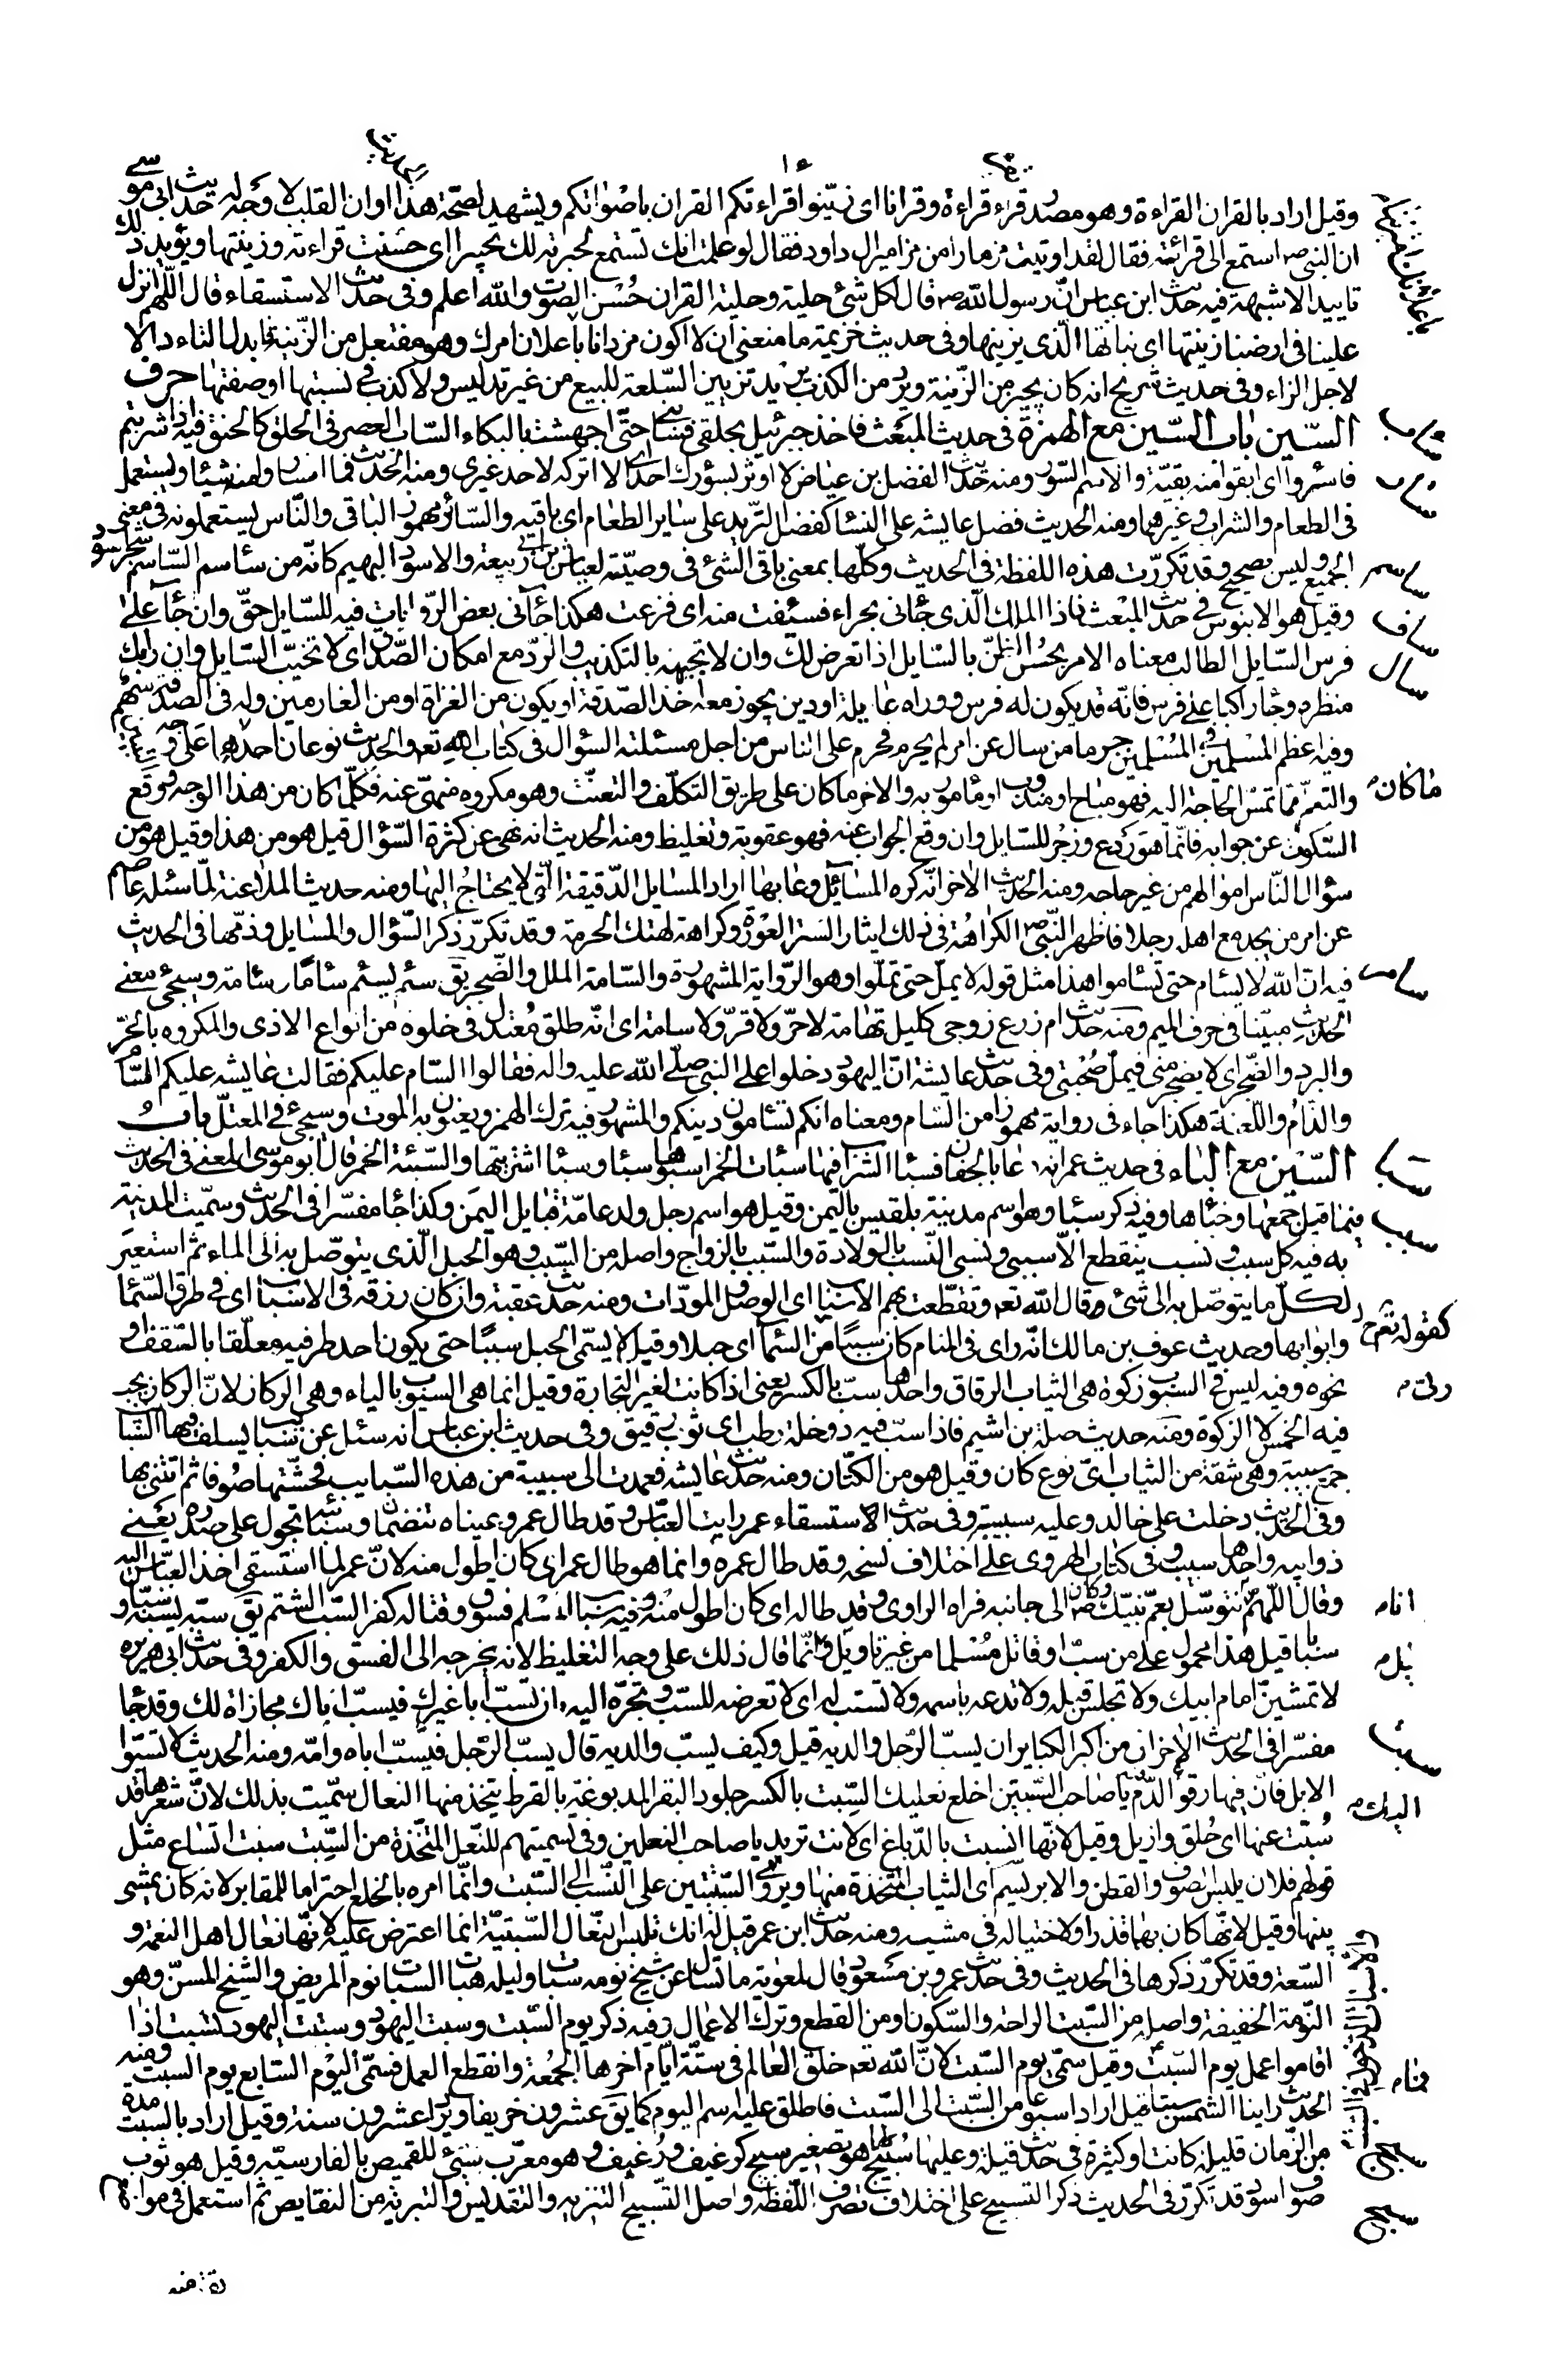 وقيل اراد بالقران القراءة وهو مصدر قرء قراءة وقرانا اى زيّنوا قراءتكم القران باصواتكم ويشهد لصحّة هذا وان القلب لا وجه له حديث ابى موسى
ان النبى ص استمع الى قرائته فقال لقد اوتيت مزمارا من مزامير ال داود فقال لو علمت انك تستمع لحبرته لك تحبيرا اى حسّنت قراءته وزينتها ويؤيد ذلك
تاييدا لا شبهة فيه حديث ابن عباس انّ رسول الله ص قال لكل شئ حلية وحلية القران حُسْن الصوت والله اعلم وفى حديث الاستسقاء قال اللّهم انزل
علينا فى ارضنا زينتها اى نباتها الّذى يزينها وفى حديث خزيمة ما منعنى ان لا اكون مزدانا باعلان امرك وهو مفتعل من الزّينة فابدل التاء دالا
لاجل الزاء وفى حديث شريح انه كان يجيز من الزّينة ويردّ من الكذب يريد تزيين السّلعة للبيع من غير تدليس ولا كذب فى نسبتها او صفتها حرف
السّين باب السّين مع الهمزة فى حديث المبعث فاخذ جبرئيل بحلقى فسأبنى حتّى اجهشت بالبكاء السّاب العصر فى الحلق كالخنق فيه اذا شربتم
فاسئروا اى ابقوا منه بقيّة والاسم السّؤر ومنه حديث الفضل بن عياض لا اوثر بسؤرك احدا اى لا اتركه لاحد غيرى ومنه الحديث فما اسار وا منه شيئا ويستعمل
فى الطعام والشراب وغيرهما ومنه الحديث فضل عايشه على النسا كفضل الثّريد على ساير الطعام اى باقيه والسّائر مهموز الباقى والنّاس يستعملونه فى معنى
الجميع وليس بصحيح وقد تكرّرت هذه اللفظة فى الحديث وكلّها بمعنى باقى الشّئ فى وصيّته لعياش بن ابى ربيعة والاسود البهيم كانّه من ساسم السّاسم شجر اسود
وقيل هو الابنوس فى حديث المبعث فاذا الملك الّذى جائنى بحراء فسئفت منه اى فزعت هكذا جا فى بعض الرّوايات فيه للسّايل حقّ وان جآء على
فرس السّايل الطالب معناه الامر بحُسْن الظنّ بالسّايل اذا تعرض لك وان لا تجبهه بالتكذيب والردّ مع امكان الصّدق اى لا تخيّب السّايل وان رابك
منظره وجا راكبا على فرس فانّه قد يكون له فرس ووراه عايلة او دين يجوز معه اخذ الصّدقة او يكون من الغزاة او من الغارمين وله فى الصدقة سهم
وفيه اعظم المسلمين فى المسْلمين جرما من سال عن امر لم يحرم فحرم على النّاس من اجل مسئلته السؤال فى كتاب الله تعه والحديث نوعان احدهما على وجه
والتعلّم ممّا تمسّ الحاجة اليه فهو مباح او مندوب او مأمور به والاخر ما كان على طريق التكلّف والتعنّت وهو مكروه منهىّ عنه فكلّما كان من هذا الوجه فوقع
السّكوت عن جوابه فانّما هو ردع وزجر للسّايل وان وقع الجواب عنه فهو عقوبة وتغليظ ومنه الحديث انه نهى عن كثرة السّؤال قيل هو من هذا وقيل هو من
سؤال النّاس اموالهم من غير حاجه ومنه الحديث الاخر انّه كره المسائل وعابها اراد المسايل الدّقيقة الّتى لا يحتاج اليها ومنه حديث الملاعنة لمّا سئله عاصم
عن امر من يجد مع اهله رجلا فاظهر النّبى ص الكراهة فى ذلك ايثارا لستر العورة وكراهة لهتك الحرمة وقد تكرّر ذكر السّؤال والمسايل وذمّها فى الحديث
فيه ان الله لا يسئام حتى تسئاموا هذا مثل قوله لا يملّ حتى تملّوا وهو الرّواية المشهورة والسّامة الملل والضّجر يق سئم يسئم سئامًا وسئامة وسيجئ معنى
الحديث مبيّنا فى حرف الميم ومنه حديث ام زرع زوجى كليل تهامة لا حرّ ولا قرّ ولا سامة اى انّه طلق معتدل فى خلوه من انواع الاذى والمكروه بالحرّ
والبرد والضّجر اى لا يضجر منى فيملّ صُحْبتى وفى حديث عايشة انّ اليهود دخلوا على النبى صلّى الله عليه واله فقالوا السّام عليكم فقالت عايشه عليكم السّام
والذّام واللّعنة هكذا جاء فى رواية مهموزا من السّام ومعناه انكم تسئامون دينكم والمشهور فيه ترك الهمز ويعنون به الموت وسيجئ فى المعتلّ باب
السّين مع الباء فى حديث عمر انه دعا بالجفان فسبئا الشّراب فيها سبئات الخمر اسبئوها سبئا وسبئا اشتريتها والسّبئة الخمر قال ابو موسى المعنى فى الحديث
فيما قيل جمعها وخبئاها وفيه ذكر سبئا وهو اسم مدينة بلقيس باليمن وقيل هو اسم رجل ولد عامّة قبايل اليمن وكذا جا مفسّرا فى الحديث وسمّيت المدينة
به فيه كل سبب ونسب ينقطع الّا سببى ونسبى النّسب بالولادة والسّبب بالزواج واصله من السّبب وهو الحبل الّذى يتوصّل به الى الماء ثم استعير
لكلّ ما يتوصّل به الى شئ وقال الله تعه وتقطّعت بهم الاسباب اى الوصل والمودّات ومنه حديث عقبة وان كان رزقه فى الاسباب اى فى طرق السّما
وابوابها وحديث عوف بن مالك انّه راى فى المنام كان سببًا من السّماء اى حبلا وقيل لا يسمّى الحبل سببًا حتى يكون احد طرفيه معلّقا بالسّقف او
نحوه وفيه ليس فى السّبوب زكوة هى الثياب الرقاق واحدها سبّ بالكسر يعنى اذا كانت لغير التجارة وقيل انما هى السيوب بالياء وهى الركاز لانّ الركاز يجب
فيه الخمس لا الزكوة ومنه حديث صلة بن اشيم فاذا سبّ فيه دوخلة رطب اى ثوب رقيق وفى حديث ابن عباس انه سئل عن سبايب يسلف فيها السّبايب
جمع سبيبة وهى شقة من الثياب اىّ نوع كان وقيل هو من الكتّان ومنه حديث عايشه فعمدت الى سبيبة من هذه السّبايب فحشّتها صوفا ثم اتتنى بها
وفى الحديث دخلت على خالد وعليه سبيبة وفى حديث الاستسقاء عمر رايت العبّاس وقد طال عمر وعيناه تنضمّان وسبائبه تجول على صدره يعنى
ذوايبه واحدها سبيب وفى كتاب الهروى على اختلاف نسخه وقد طال عمره وانما هو طال عمر اى كان اطول منه لانّ عمر لما استسقى اخذ العبّاس اليه
وقال اللّهمّ نتوسّل بعمّ نبيّك ص وكان الى جانبه فراه الراوى وقد طاله اى كان اطول منه وفيه سباب المسلم فسوق وقتاله كفر السّبّ الشتم يق سبّه يسبّه سبّا و
سبابا قيل هذا محمول على من سبّ او قاتل مُسْلما من غير تاويل وانّما قال ذلك على وجه التغليظ لا انه يخرجه الى الفسق والكفر وفى حديث ابى هريره
لا تمشينّ امام ابيك ولا تجلس قبله ولا تدعه باسمه ولا تستسب له اى لا تعرضه للسّبّ وتجرّه اليه بان تسبّ ابا غيرك فيسبّ اباك مجازاة لك وقد جا
مفسّرا فى الحديث الاخر ان من اكبر الكباير ان يسبّ الرّجل والديه قيل وكيف يسبّ والديه قال يسبّ الرّجل فيسبّ اباه وامّه ومنه الحديث لا تسبّوا
الابل فانّ فيها رقوء الدّم يا صاحب السّبتين اخلع نعليك السِّبت بالكسر جلود البقر المدبوغة بالقرظ يتخذ منها النعال سمّيت بذلك لانّ شعرها قد
سُبّت عنها اى حُلق وازيل وقيل لانّها انسبتت بالدّباغ اى لانت تريد يا صاحب النعلين وفى تسميتهم للنّعل المتّخذة من السِّبت سبتا اتساع مثل
قولهم فلان يلبس الصوف والقطن والابريسم اى الثياب المتّخذة منها ويروى السّبتيّتين على النّسب الى السّبت وانّما امره بالخلع احتراما للمقابر لانه كان يمشى
بينها وقيل لانّها كان بها قذر او لاختياله فى مشيه ومنه حديث ابن عمر قيل له انك تلبس النّعال السّبتيّة انما اعترض عليه لانّها نعال اهل النعمة و
السّعة وقد تكرّر ذكرها فى الحديث وفى حديث عمرو بن مسعود قال لمعوية ما تسال عن شيخ نومه سبات وليله هبات السّبات نوم المريض والشيخ المسنّ وهو
النّومة الخفيفة واصله من السّبت الراحة والسّكون او من القطع وترك الاعمال وفيه ذكر يوم السّبت وسبت اليهود وسبتت اليهود تسبت اذا
اقاموا عمل يوم السّبت وقيل سمّى يوم السّبت لانّ الله تعه خلق العالم فى ستّة ايّام اخرها الجُمُعة وانقطع العمل فسمّى اليوم السّابع يوم السبت ومنه
الحديث راينا الشمس سبتا قيل اراد اسبوعا من السّبت الى السّبت فاطلق عليه اسم اليوم كما يق عشرون خريفا ويراد عشرون سنة وقيل اراد بالسّبت مدة
من الزّمان قليلة كانت او كثيرة فى حديث قيلة وعليها سُبيّج لها هو تصغير سبيج كرغيف ورُغيّف وهو معرّب شبى للقميص بالفارسيّة وقيل هو ثوب
صوف اسود قد تكرّر فى الحديث ذكر التسبيح على اختلاف تصرّف اللّفظة واصل التّسبيح التنزيه والتقديس والتبرئة من النقايص ثم استعمل فى مواضع
ساب
سار
ساسم
ساف
سال
ما كان
سام
سبا
سبب
كقوله تعه
انا
بل
سبت
سبج
سبح